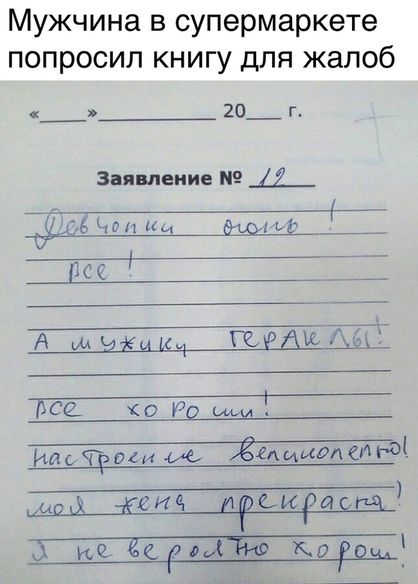 Мужчина в супермаркете
попросил книгу для жалоб
«___»__________ 20___ г.
Заявление № 12
Девчопки огонь !
все !
А мужики ГЕРАКЛЫ!
все хороши!
настроение великолепно!
моя жена прекрасна!
Я не вероятно хорош!